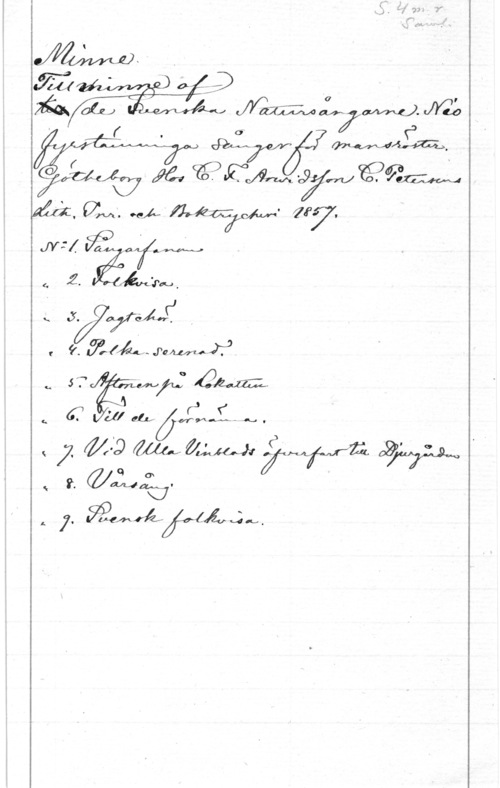 S. 4 m. r
Saml.
Minne
Till minne af
de Svenska Natursångarne. Nio
fyrstämmiga sånger för mansröster.
Götheborg Hos C. F. Arwidsson C. Petersens
Lith. Inr. och Boktryckeri 1857.
N:1. Sångarfanan
" 2. Folkvisa.
" 3. Jagtchör.
" 4. Polka-serenad.
" 5. Aftonen på Lokatten
" 6. Till de förnäma.
" 7. Vid Ulla Vinblads öfverfart till Djurgården
" 8. Vårsång
" 9. Svensk folkvisa.